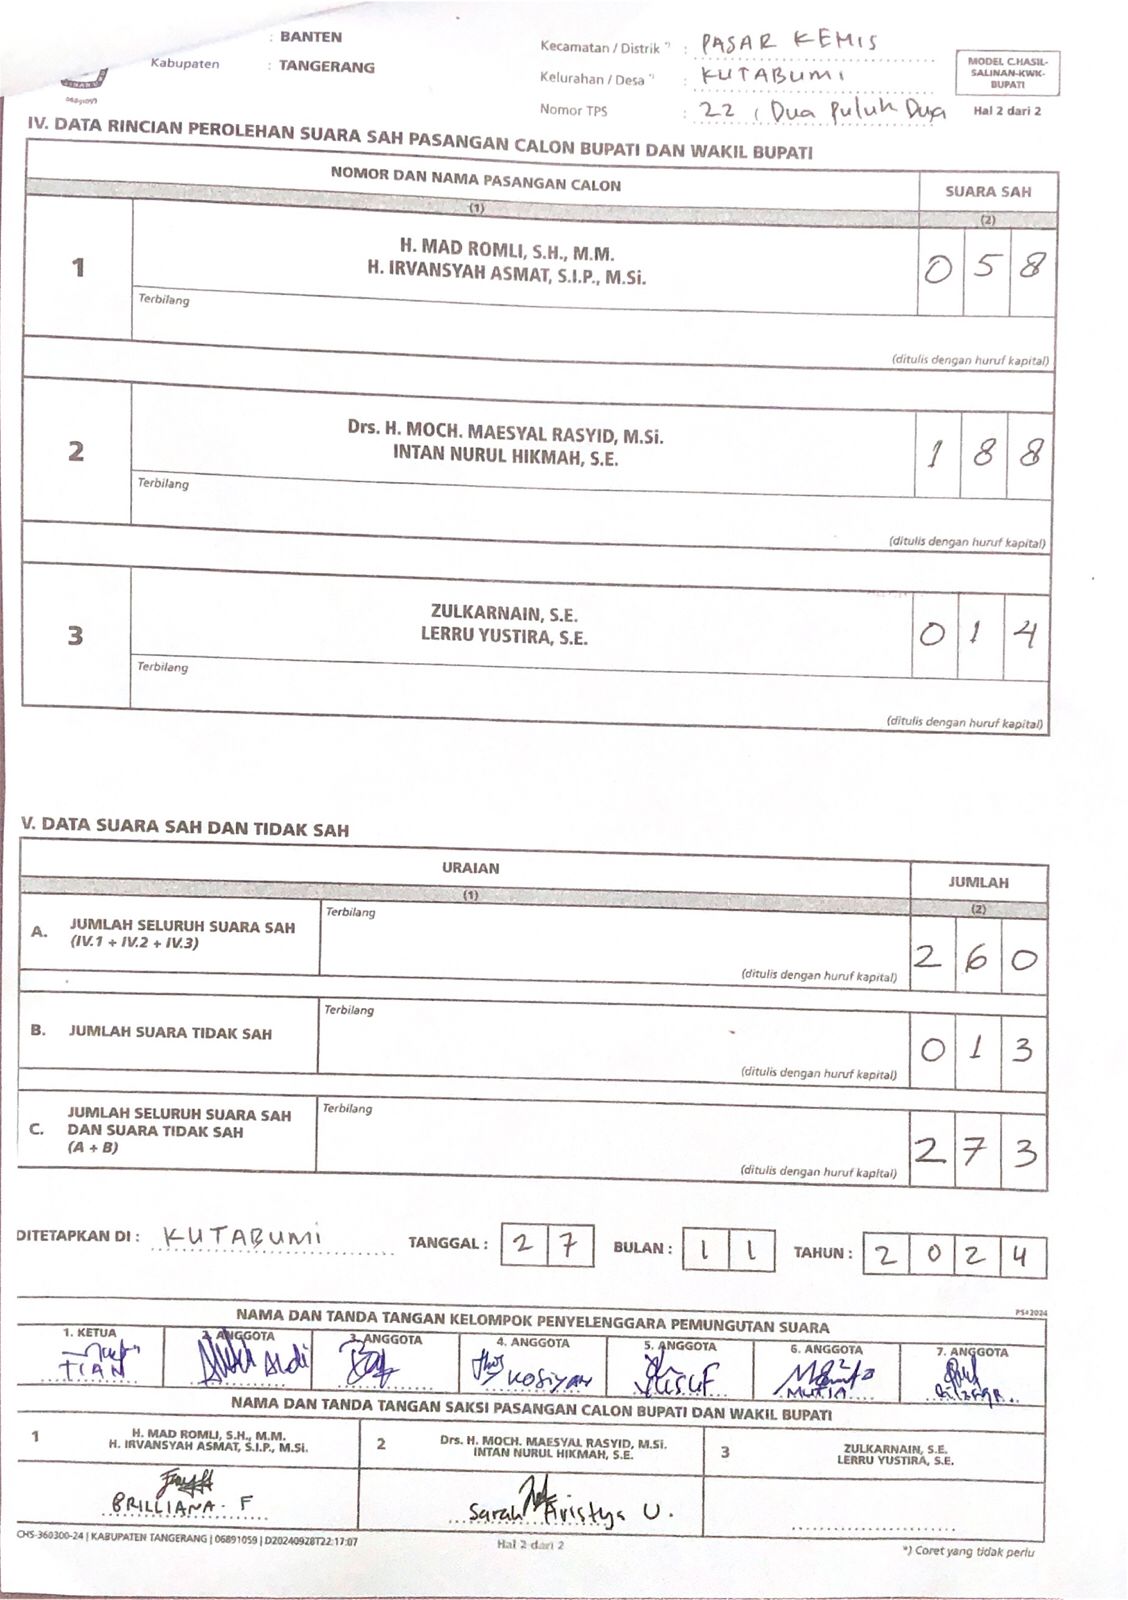 : BANTEN
Kabupaten : TANGERANG
06891059
Kecamatan / Distrik *) : PASAR KEMIS
Kelurahan / Desa *) : KUTABUMI
Nomor TPS : 22 , Dua Puluh Dua
MODEL C.HASIL-
SALINAN-KWK-
BUPATI
Hal 2 dari 2
IV. DATA RINCIAN PEROLEHAN SUARA SAH PASANGAN CALON BUPATI DAN WAKIL BUPATI
NOMOR DAN NAMA PASANGAN CALON SUARA SAH
(1) (2)
1 H. MAD ROMLI, S.H., M.M.
H. IRVANSYAH ASMAT, S.I.P., M.Si. 0 5 8
Terbilang
(ditulis dengan huruf kapital)
2 Drs. H. MOCH. MAESYAL RASYID, M.Si.
INTAN NURUL HIKMAH, S.E. 1 8 8
Terbilang
(ditulis dengan huruf kapital)
3 ZULKARNAIN, S.E.
LERRU YUSTIRA, S.E. 0 1 4
Terbilang
(ditulis dengan huruf kapital)
V. DATA SUARA SAH DAN TIDAK SAH
URAIAN JUMLAH
(1) (2)
A. JUMLAH SELURUH SUARA SAH
(IV.1 + IV.2 + IV.3) Terbilang 2 6 0
(ditulis dengan huruf kapital)
B. JUMLAH SUARA TIDAK SAH Terbilang 0 1 3
(ditulis dengan huruf kapital)
C. JUMLAH SELURUH SUARA SAH
DAN SUARA TIDAK SAH
(A + B) Terbilang 2 7 3
(ditulis dengan huruf kapital)
DITETAPKAN DI : KUTABUMI TANGGAL : 2 7 BULAN : 1 1 TAHUN : 2 0 2 4
PS#2024
NAMA DAN TANDA TANGAN KELOMPOK PENYELENGGARA PEMUNGUTAN SUARA
1. KETUA 2. ANGGOTA 3. ANGGOTA 4. ANGGOTA 5. ANGGOTA 6. ANGGOTA 7. ANGGOTA
TIAN Aldi KOSIYAH Yusuf MUTIA
NAMA DAN TANDA TANGAN SAKSI PASANGAN CALON BUPATI DAN WAKIL BUPATI
1 H. MAD ROMLI, S.H., M.M.
H. IRVANSYAH ASMAT, S.I.P., M.Si.
2 Drs. H. MOCH. MAESYAL RASYID, M.Si.
INTAN NURUL HIKMAH, S.E.
3 ZULKARNAIN, S.E.
LERRU YUSTIRA, S.E.
BRILLIANA. F
Sarah Aristya U.
CHS-360300-24 | KABUPATEN TANGERANG | 06891059 | D20240928T22:17:07
Hal 2 dari 2
*) Coret yang tidak perlu